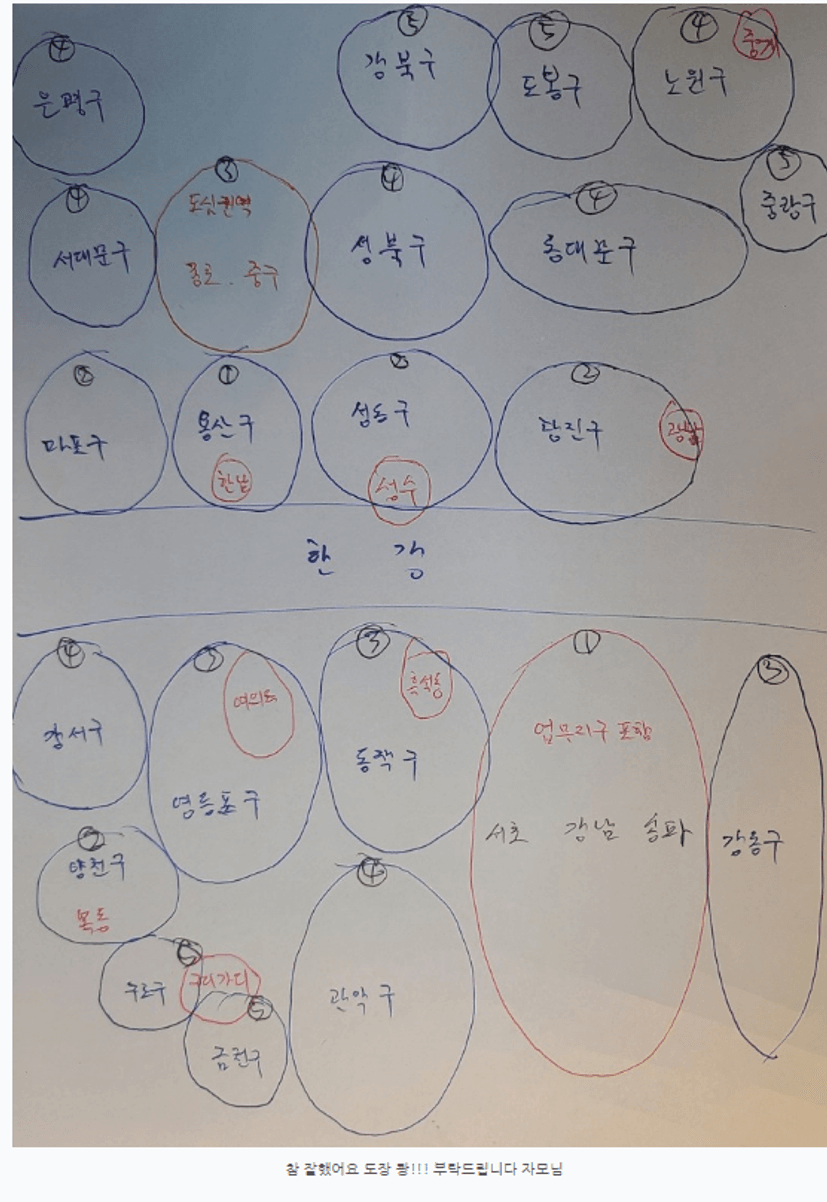 ⑤
강북구
⑤
도봉구
④
노원구
중계
④
은평구
⑤
중랑구
④
서대문구
③
도심권역
종로 . 중구
④
성북구
④
동대문구
②
마포구
①
용산구
한남
②
성동구
성수
②
광진구
광남
한 강
④
강서구
③
여의도
영등포구
③
흑석동
동작구
①
업무지구 포함
서초 강남 송파
③
강동구
②
양천구
목동
⑤
구로구
구디가디
⑤
금천구
④
관악구
참 잘했어요 도장 쾅!!! 부탁드립니다 자모님